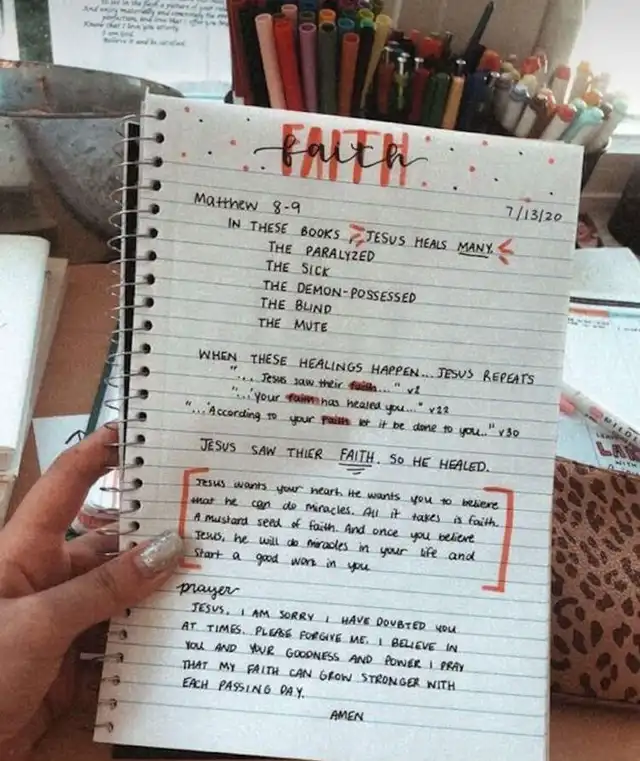 and enjoy materially and
perfection, and love that I
Know that I love you utterly.
I am God.
Believe it and be satisfied.
FAITH
faith
Matthew 8-9
7/13/20
IN THESE BOOKS, JESUS HEALS MANY.
THE PARALYZED
THE SICK
THE DEMON-POSSESSED
THE BLIND
THE MUTE
WHEN THESE HEALINGS HAPPEN... JESUS REPEATS
"... Jesus saw their faith..." v2
"...'Your faith has healed you..." v22
"...'According to your faith let it be done to you.." v30
JESUS SAW THIER FAITH. SO HE HEALED.
Jesus wants your heart. He wants you to believe
that he can do miracles. All it takes is faith.
A mustard seed of faith. And once you believe
Jesus, he will do miracles in your life and
start a good work in you
prayer
JESUS, I AM SORRY I HAVE DOUBTED YOU
AT TIMES. PLEASE FORGIVE ME. I BELIEVE IN
YOU AND YOUR GOODNESS AND POWER I PRAY
THAT MY FAITH CAN GROW STRONGER WITH
EACH PASSING DAY.
AMEN